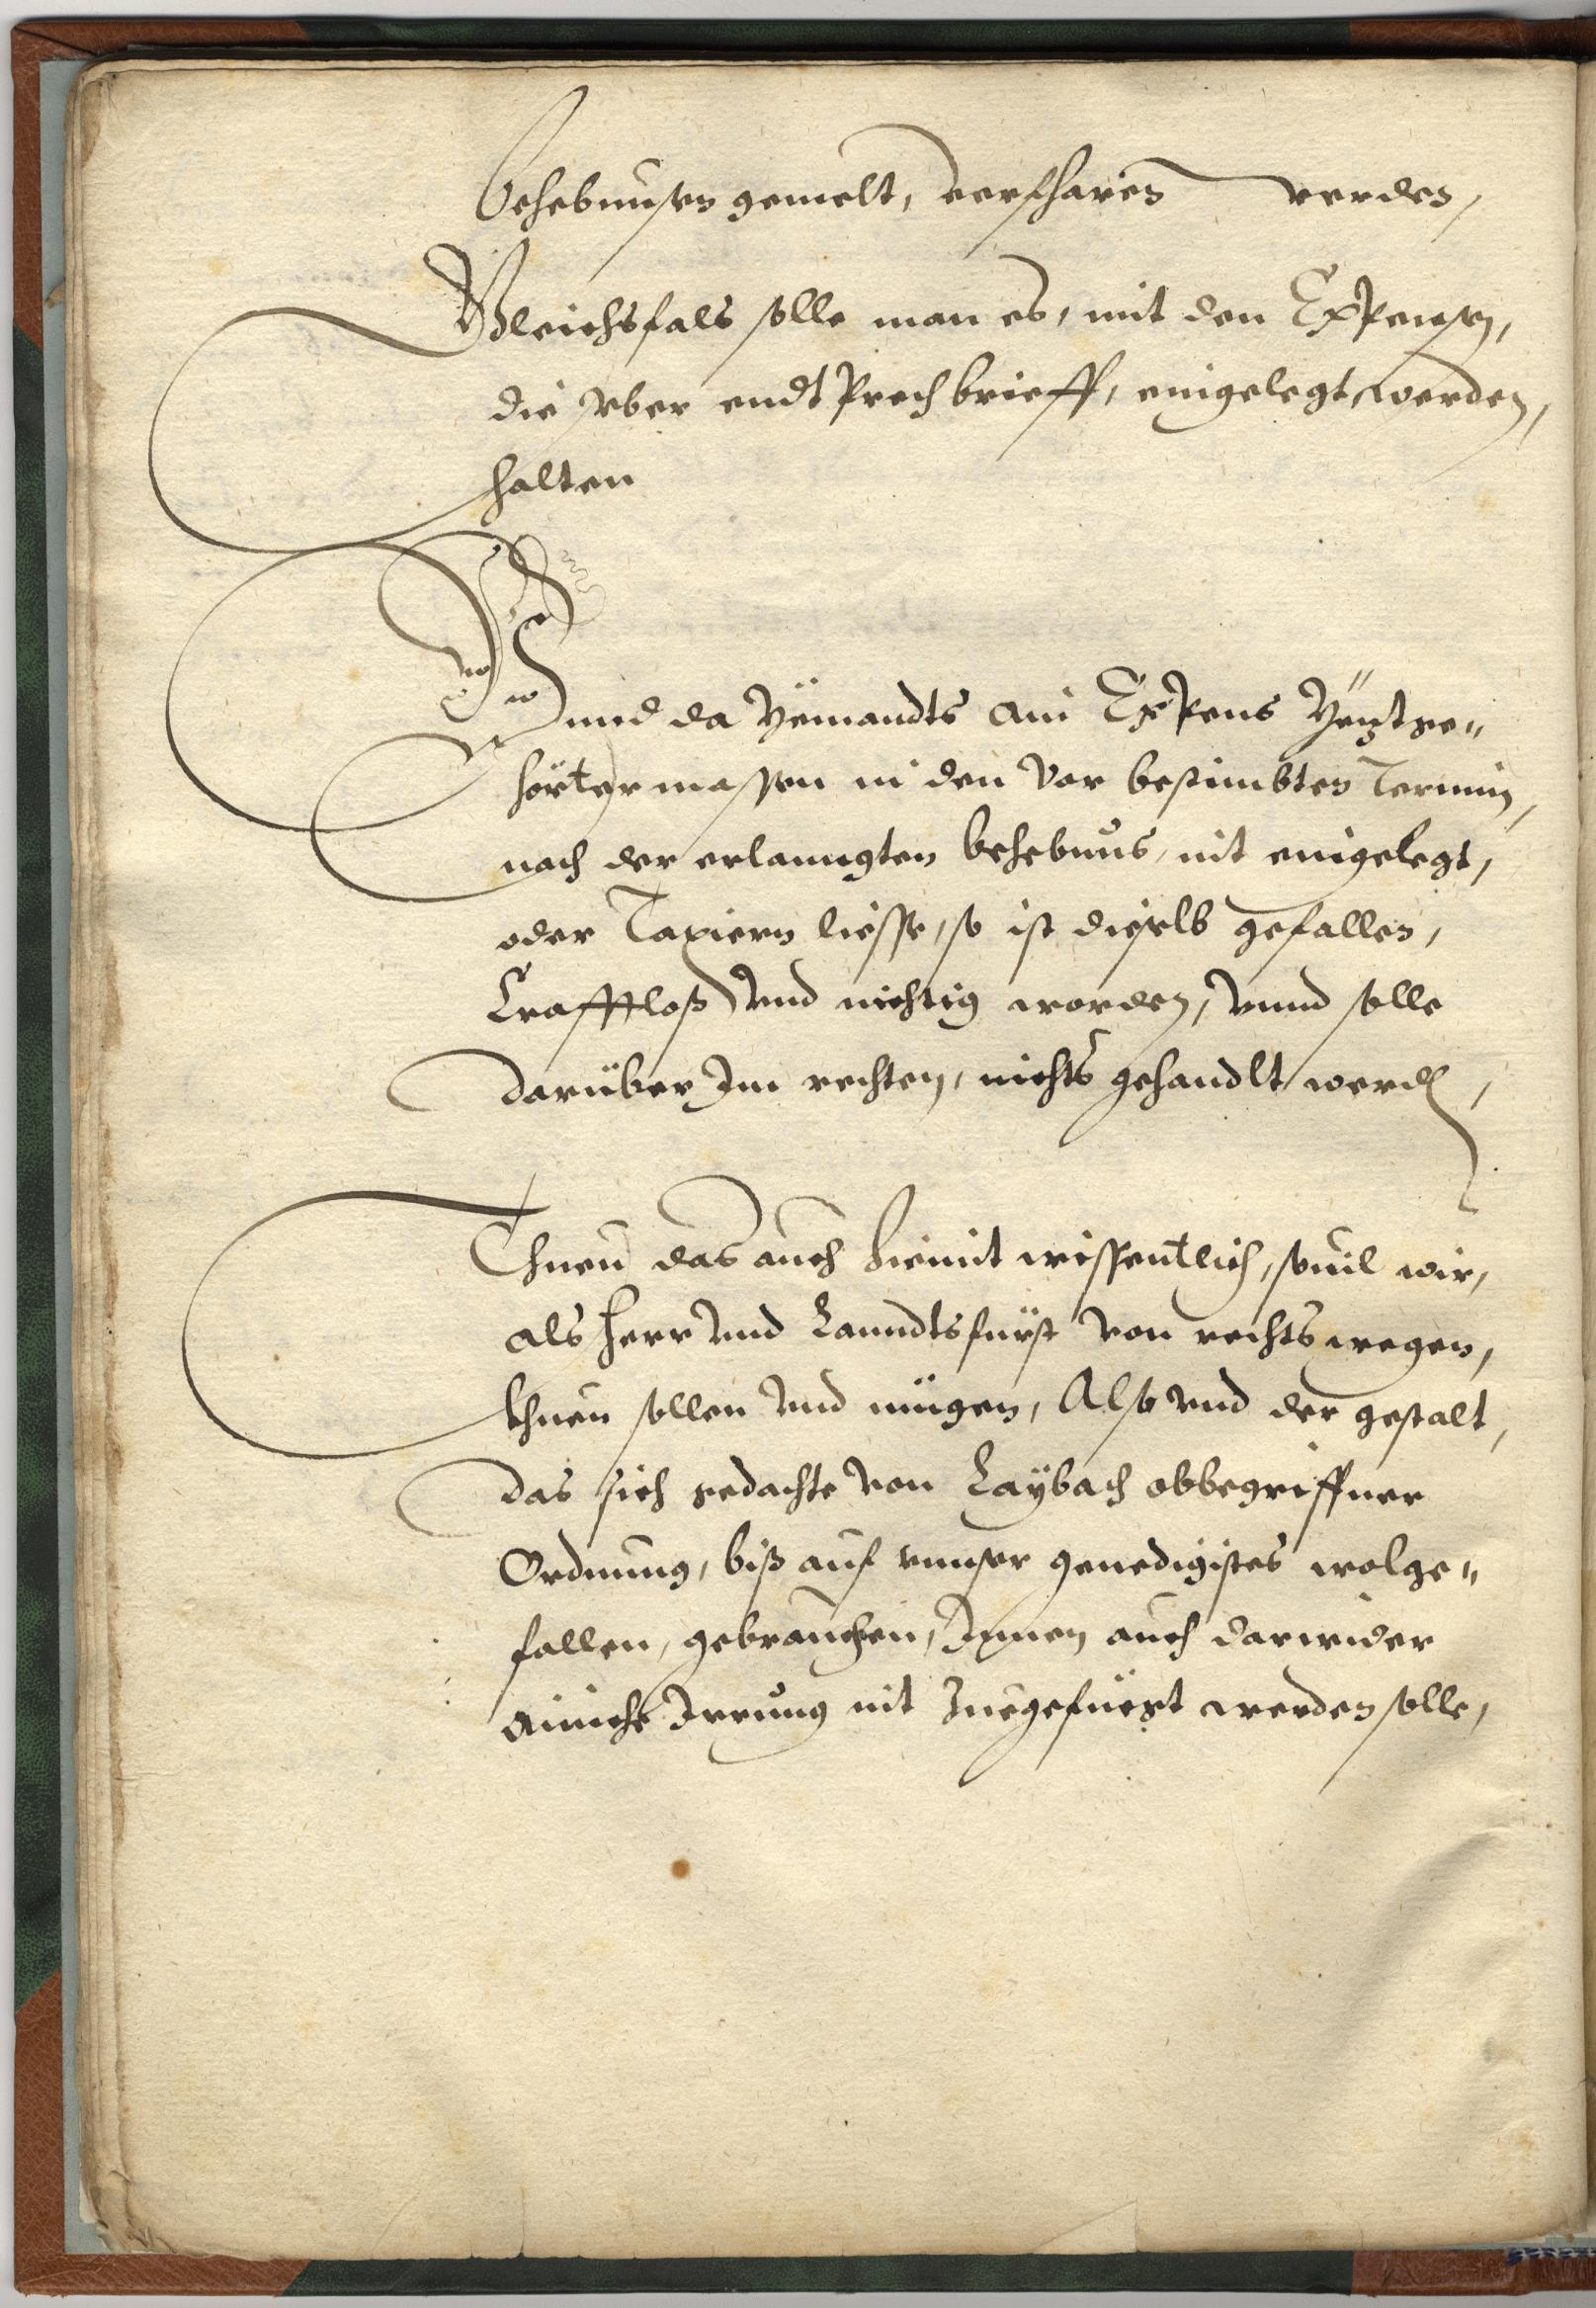 Behebnussen gemelt, verfharen werden,
Gleichsfals solle man es, mit den Expensen,
die vber endt Prech brieff, eingelegt werden,
halten
Vnnd da Yemandts ain Expens Yeztge„
hörter massen in den vor bestimbten Termin,
nach der erlanngten behebnus, nit eingelegt,
oder Taxiern liesse, so ist dieselb gefallen,
Crafftloß vnd nichtig worden, vnnd solle
darüber Im rechten, nichts gehandlt werden,
Thuen das auch hiemit wissentlich, souil wir,
als Herr vnd Lanndtsfürst von rechts wegen,
thuen sollen vnd mügen, Also vnd der gestalt,
das sich gedachte von Laÿbach obbegriffner
Ordnung, biß auf vnnser genedigistes wolge„
fallen, gebrauchen, Innen auch darwider
ainiche Irrung nit Zuegefüegt werden solle,